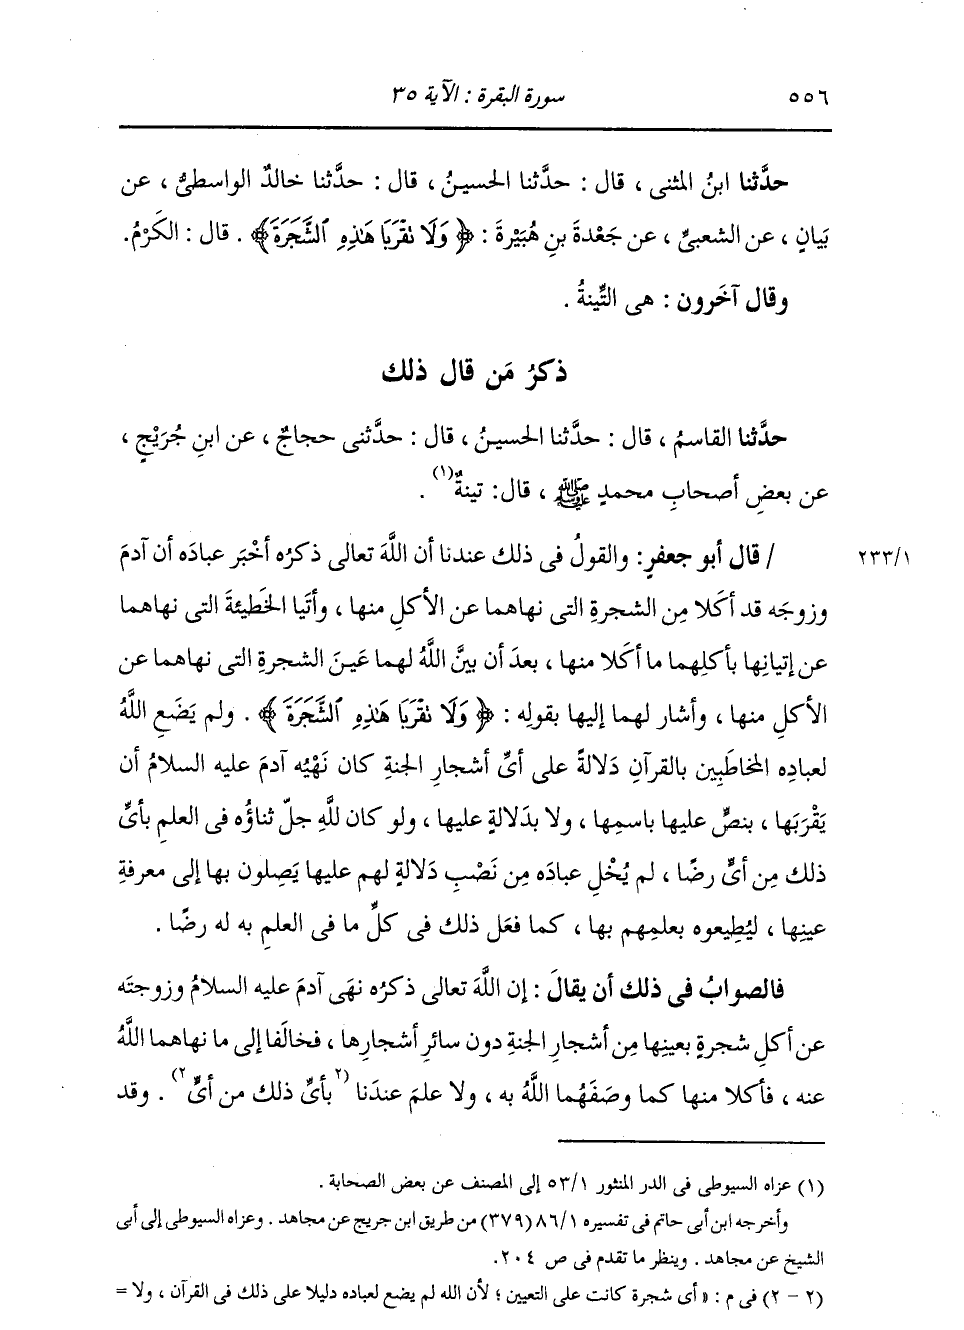 ٥٥٦ سورة البقرة : الآية ٣٥
حدَّثنا ابنُ المثنى ، قال : حدَّثنا الحسينُ ، قال : حدَّثنا خالدٌ الواسطىُّ ، عن
بَيانٍ ، عن الشعبىِّ ، عن جَعْدةَ بنِ هُبَيْرةَ : ﴿ وَلَا تَقْرَبَا هَٰذِهِ ٱلشَّجَرَةَ ﴾ . قال : الكَرْمُ.
وقال آخَرون : هى التِّينةُ .
ذكرُ مَن قال ذلك
حدَّثنا القاسمُ ، قال : حدَّثنا الحسينُ ، قال : حدَّثنى حجاجٌ ، عن ابنِ جُرَيْجٍ ،
عن بعضِ أصحابِ محمدٍ ﷺ ، قال: تينةٌ(١) .
٢٣٣/١ / قال أبو جعفرٍ : والقولُ فى ذلك عندنا أن اللَّهَ تعالى ذكرُه أخْبَر عبادَه أن آدمَ
وزوجَه قد أكَلا مِن الشجرةِ التى نهاهما عن الأكلِ منها ، وأتَيا الخَطيئةَ التى نهاهما
عن إتيانِها بأكلِهما ما أكَلا منها ، بعدَ أن بيَّنَ اللَّهُ لهما عَينَ الشجرةِ التى نهاهما عن
الأكلِ منها ، وأشار لهما إليها بقولِه : ﴿ وَلَا تَقْرَبَا هَٰذِهِ ٱلشَّجَرَةَ ﴾ . ولم يَضَعِ اللَّهُ
لعبادِه المخاطَبِين بالقرآنِ دَلالةً على أىِّ أشجارِ الجنةِ كان نَهْيُه آدمَ عليه السلامُ أن
يَقْرَبَها ، بنصٍّ عليها باسمِها ، ولا بدَلالةٍ عليها ، ولو كان للَّهِ جلّ ثناؤُه فى العلمِ بأىِّ
ذلك مِن أىٍّ رضًا ، لم يُخْلِ عبادَه مِن نَصْبِ دَلالةٍ لهم عليها يَصِلون بها إلى معرفةِ
عينِها ، ليُطِيعوه بعلمِهم بها ، كما فعَل ذلك فى كلِّ ما فى العلمِ به له رضًا .
فالصوابُ فى ذلك أن يقالَ : إن اللَّهَ تعالى ذكرُه نهَى آدمَ عليه السلامُ وزوجتَه
عن أكلِ شجرةٍ بعينِها مِن أشجارِ الجنةِ دون سائرِ أشجارِها ، فخالَفا إلى ما نهاهما اللَّهُ
عنه ، فأكَلا منها كما وصَفَهُما اللَّهُ به ، ولا علمَ عندَنا (٢بأىِّ ذلك من أىٍّ٢) . وقد
(١) عزاه السيوطى فى الدر المنثور ٥٣/١ إلى المصنف عن بعض الصحابة .
وأخرجه ابن أبى حاتم فى تفسيره ٨٦/١ (٣٧٩) من طريق ابن جريج عن مجاهد . وعزاه السيوطى إلى أبى
الشيخ عن مجاهد . وينظر ما تقدم فى ص ٢٠٤.
(٢ - ٢) فى م : « أى شجرة كانت على التعيين ؛ لأن الله لم يضع لعباده دليلا على ذلك فى القرآن ، ولا =